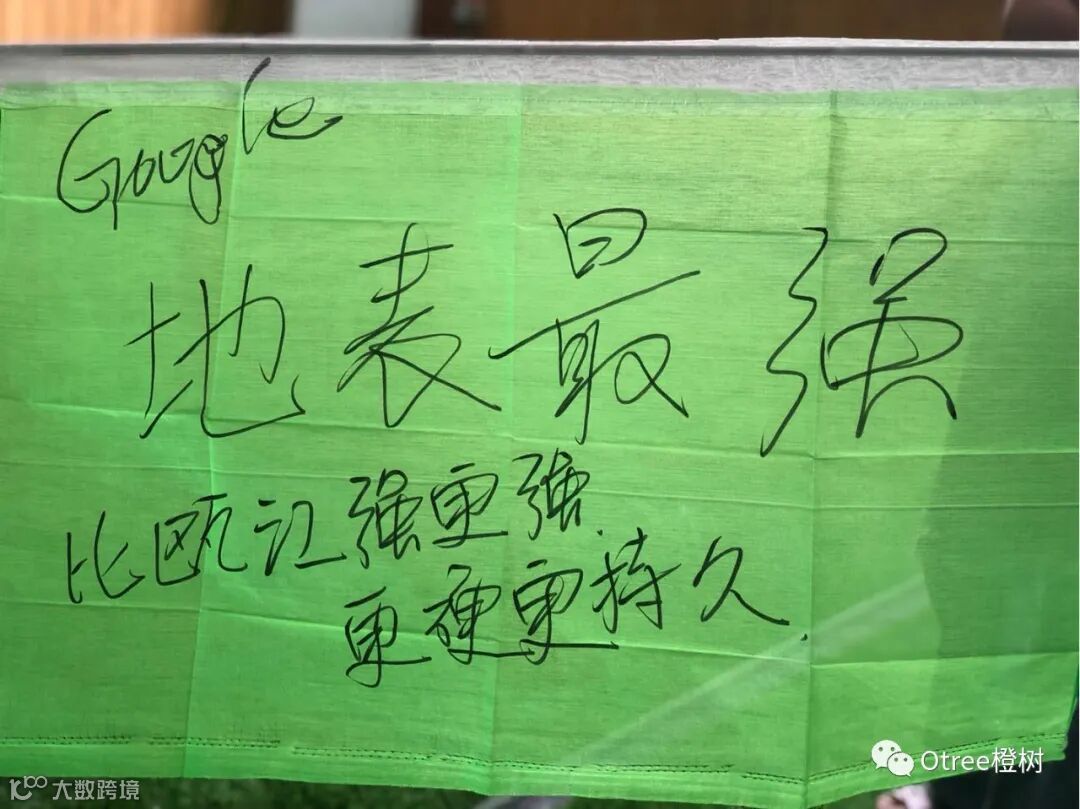 Google
地表最强
比瓯让强更强
更硬更持久
Otree橙树
大数跨境